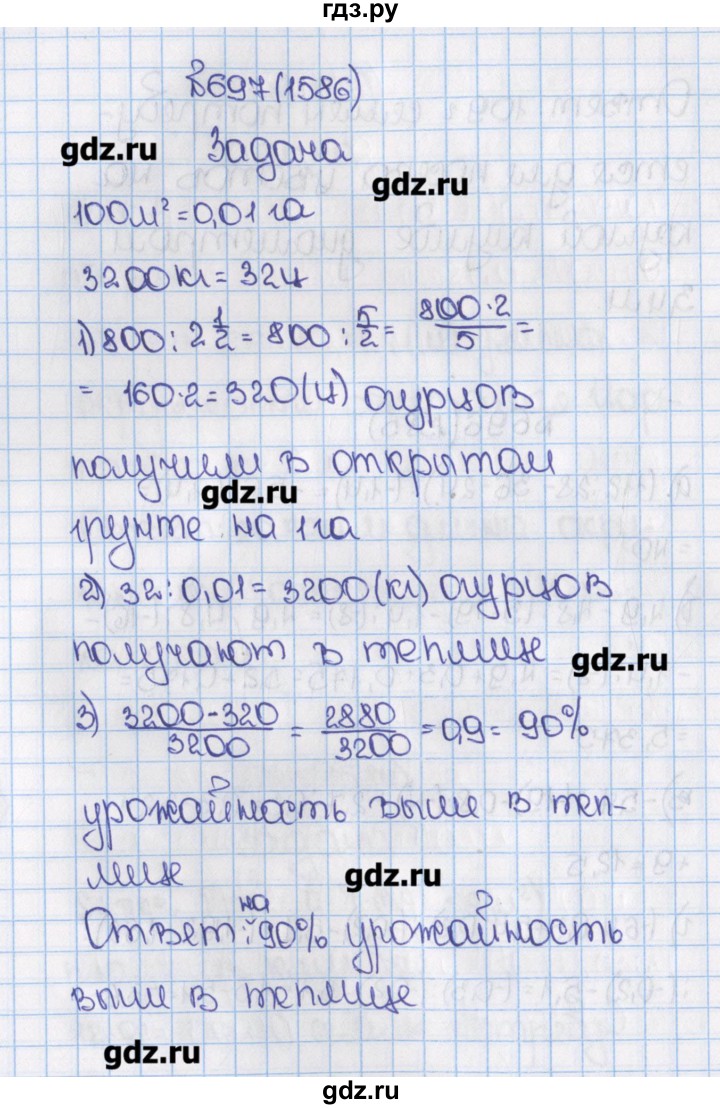 гдз.ру
№697(1586)
gdz.ru Задача
gdz.ru
100м²=0,01 га
3200кг=32ц
1) 800 : 2 1/2 = 800 : 5/2 = 800·2/5 =
= 160·2=320(ц) огурцов
получили в открытом
gdz.ru
грунте на 1га
2) 32:0,01=3200(кг) огурцов
получают в теплице
gdz.ru
3) 3200-320/3200 = 2880/3200 =0,9= 90%
урожайность выше в теп-
лице
gdz.ru
Ответ: на 90% урожайность
выше в теплице
gdz.ru
gdz.ru